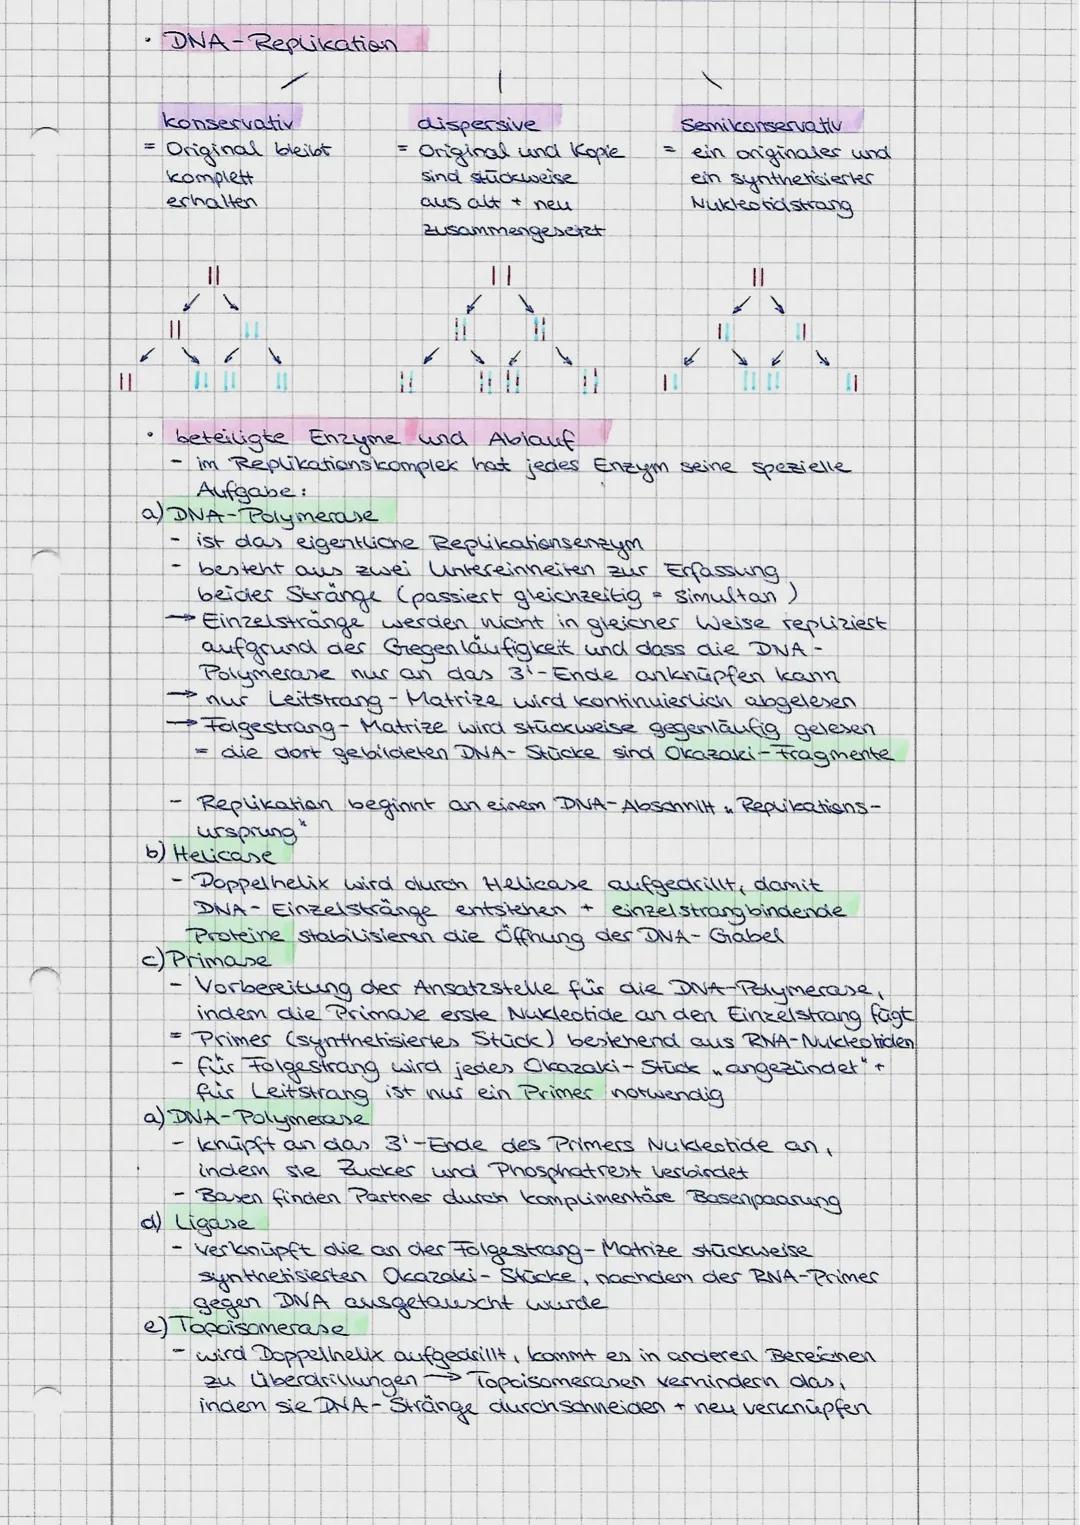 · DNA-Replikation
konservativ
= Original bleibt
komplett
erhalten
dispersive
= Original und Kopie
sind stückweise
aus alt + neu
zusammengesetzt
semikonservativ
= ein originaler und
ein synthetisierter
Nukleotidstrang
· beteiligte Enzyme und Ablauf
- im Replikationskomplex hat jedes Enzym seine spezielle
Aufgabe:
a) DNA-Polymerase
- ist das eigentliche Replikationsenzym
- besteht aus zwei Untereinheiten zur Erfassung
beider Stränge (passiert gleichzeitig = simultan)
→ Einzelstränge werden nicht in gleicher Weise repliziert
aufgrund der Gegenläufigkeit und dass die DNA-
Polymerase nur an das 3'-Ende anknüpfen kann
→ nur Leitstrang-Matrize wird kontinuierlich abgelesen
→ Folgestrang-Matrize wird stückweise gegenläufig gelesen
= die dort gebildeten DNA-Stücke sind Okazaki-Fragmente
- Replikation beginnt an einem DNA-Abschnitt „Replikations-
ursprung"
b) Helicase
- Doppelhelix wird durch Helicase aufgedrillt, damit
DNA-Einzelstränge entstehen + einzelstrangbindende
Proteine stabilisieren die Öffnung der DNA-Gabel
c) Primase
- Vorbereitung der Ansatzstelle für die DNA-Polymerase,
indem die Primase erste Nukleotide an den Einzelstrang fügt
= Primer (synthetisiertes Stück) bestehend aus RNA-Nukleotiden
- für Folgestrang wird jedes Okazaki-Stück „angezündet" +
für Leitstrang ist nur ein Primer notwendig
a) DNA-Polymerase
- knüpft an das 3'-Ende des Primers Nukleotide an,
indem sie Zucker und Phosphatrest verbindet
- Basen finden Partner durch komplimentäre Basenpaarung
d) Ligase
- verknüpft die an der Folgestrang-Matrize stückweise
synthetisierten Okazaki-Stücke, nachdem der RNA-Primer
gegen DNA ausgetauscht wurde
e) Topoisomerase
- wird Doppelhelix aufgedrillt, kommt es in anderen Bereichen
zu Überdrillungen → Topoisomerasen verhindern das,
indem sie DNA-Stränge durchschneiden + neu verknüpfen